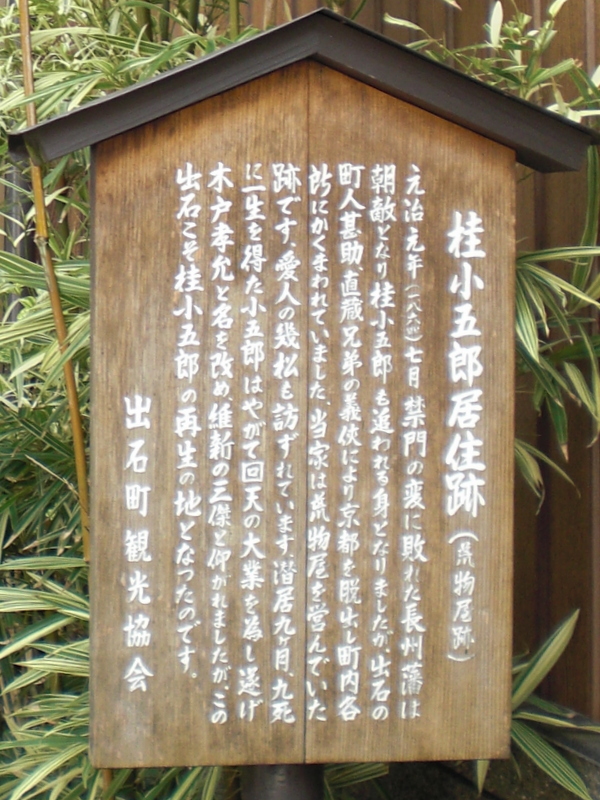 桂小五郎居住跡(荒物屋跡)
元治元年(一八六四)七月禁門の変に敗れた長州藩は
朝敵となり桂小五郎も追われる身となりましたが、出石の
町人甚助、直蔵兄弟の義侠により京都を脱出し町内各
所にかくまわれていました。当家は荒物屋を営んでいた
跡です。愛人の幾松も訪ずれています。潜居九ヶ月、九死
に一生を得た小五郎はやがて回天の大業を為し遂げ
木戸孝允と名を改め、維新の三傑と仰がれましたが、この
出石こそ桂小五郎の再生の地となったのです。
出石町観光協会